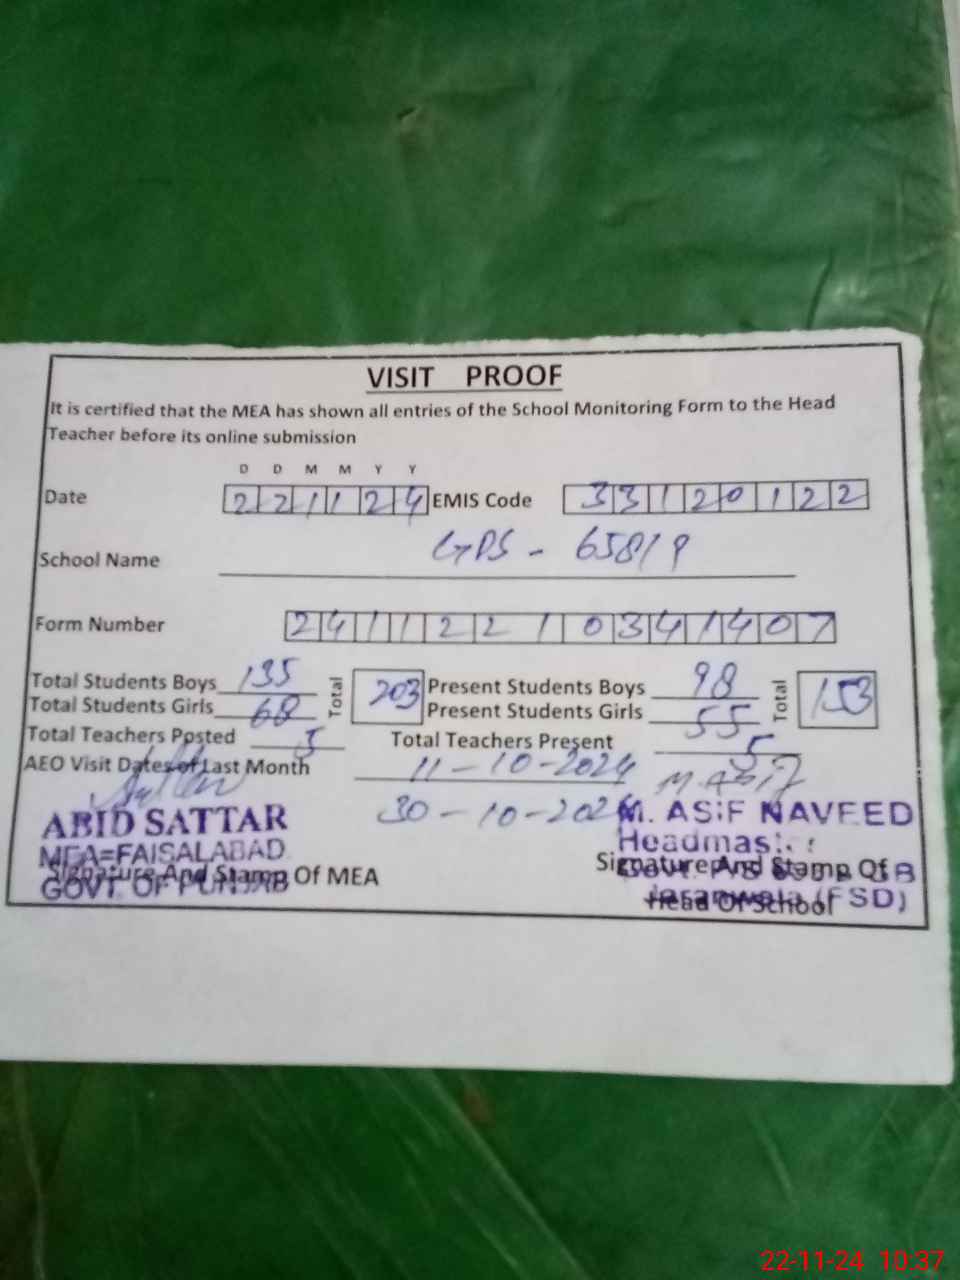 VISIT PROOF
It is certified that the MEA has shown all entries of the School Monitoring Form to the Head
Teacher before its online submission
D D M M Y Y
Date 221124 EMIS Code 33120122
School Name GPS - 658/9
Form Number 24112210341407
Total Students Boys 135 Total 203 Present Students Boys 98 Total 153
Total Students Girls 68 Present Students Girls 55
Total Teachers Posted 5 Total Teachers Present 5
AEO Visit Dates of Last Month 11-10-2024
30-10-2024
M. Asif
ABID SATTAR
MEA=FAISALABAD
GOVT. OF PUNJAB
Signature And Stamp Of MEA
M. ASIF NAVEED
Headmaster
Jaranwala (FSD)
Signature And Stamp Of
Head Of School
22-11-24 10:37